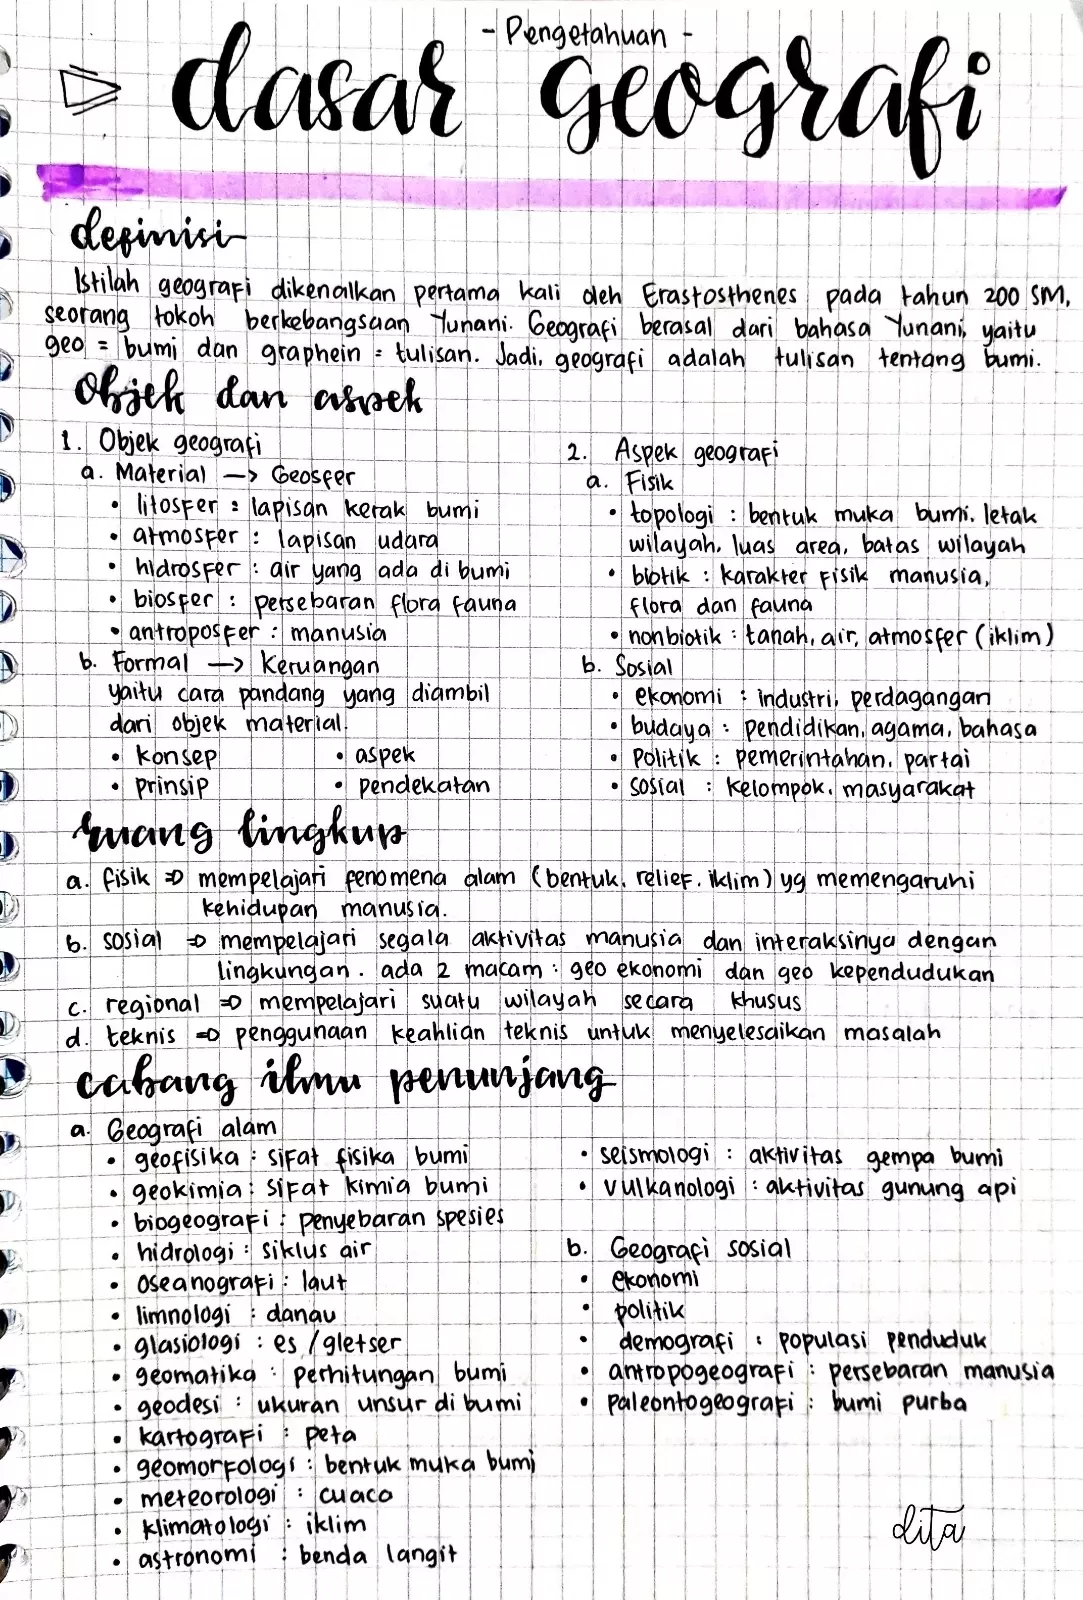 - Pengetahuan -
dasar geografi
definisi
Istilah geografi dikenalkan pertama kali oleh Erastosthenes pada tahun 200 SM,
seorang tokoh berkebangsaan Yunani. Geografi berasal dari bahasa Yunani, yaitu
geo = bumi dan graphein = tulisan. Jadi, geografi adalah tulisan tentang bumi.
Objek dan aspek
1. Objek geografi
a. Material -> Geosfer
• litosfer : lapisan kerak bumi
• atmosfer : lapisan udara
• hidrosfer : air yang ada di bumi
• biosfer : persebaran flora fauna
• antroposfer : manusia
b. Formal -> Keruangan
yaitu cara pandang yang diambil
dari objek material.
• konsep • aspek
• prinsip • pendekatan
2. Aspek geografi
a. Fisik
• topologi : bentuk muka bumi, letak
wilayah, luas area, batas wilayah
• biotik : karakter fisik manusia,
flora dan fauna
• nonbiotik : tanah, air, atmosfer (iklim)
b. Sosial
• ekonomi : industri, perdagangan
• budaya : pendidikan, agama, bahasa
• Politik : pemerintahan, partai
• sosial : kelompok, masyarakat
ruang lingkup
a. fisik => mempelajari fenomena alam (bentuk, relief, iklim) yg memengaruhi
kehidupan manusia.
b. sosial => mempelajari segala aktivitas manusia dan interaksinya dengan
lingkungan. ada 2 macam : geo ekonomi dan geo kependudukan
c. regional => mempelajari suatu wilayah secara khusus
d. teknis => penggunaan keahlian teknis untuk menyelesaikan masalah
cabang ilmu penunjang
a. Geografi alam
• geofisika : sifat fisika bumi
• geokimia : sifat kimia bumi
• biogeografi : penyebaran spesies
• hidrologi : siklus air
• oseanografi : laut
• limnologi : danau
• glasiologi : es / gletser
• geomatika : perhitungan bumi
• geodesi : ukuran unsur di bumi
• kartografi : peta
• geomorfologi : bentuk muka bumi
• meteorologi : cuaca
• klimatologi : iklim
• astronomi : benda langit
• seismologi : aktivitas gempa bumi
• vulkanologi : aktivitas gunung api
b. Geografi sosial
• ekonomi
• politik
• demografi : populasi penduduk
• antropogeografi : persebaran manusia
• paleontogeografi : bumi purba
dita